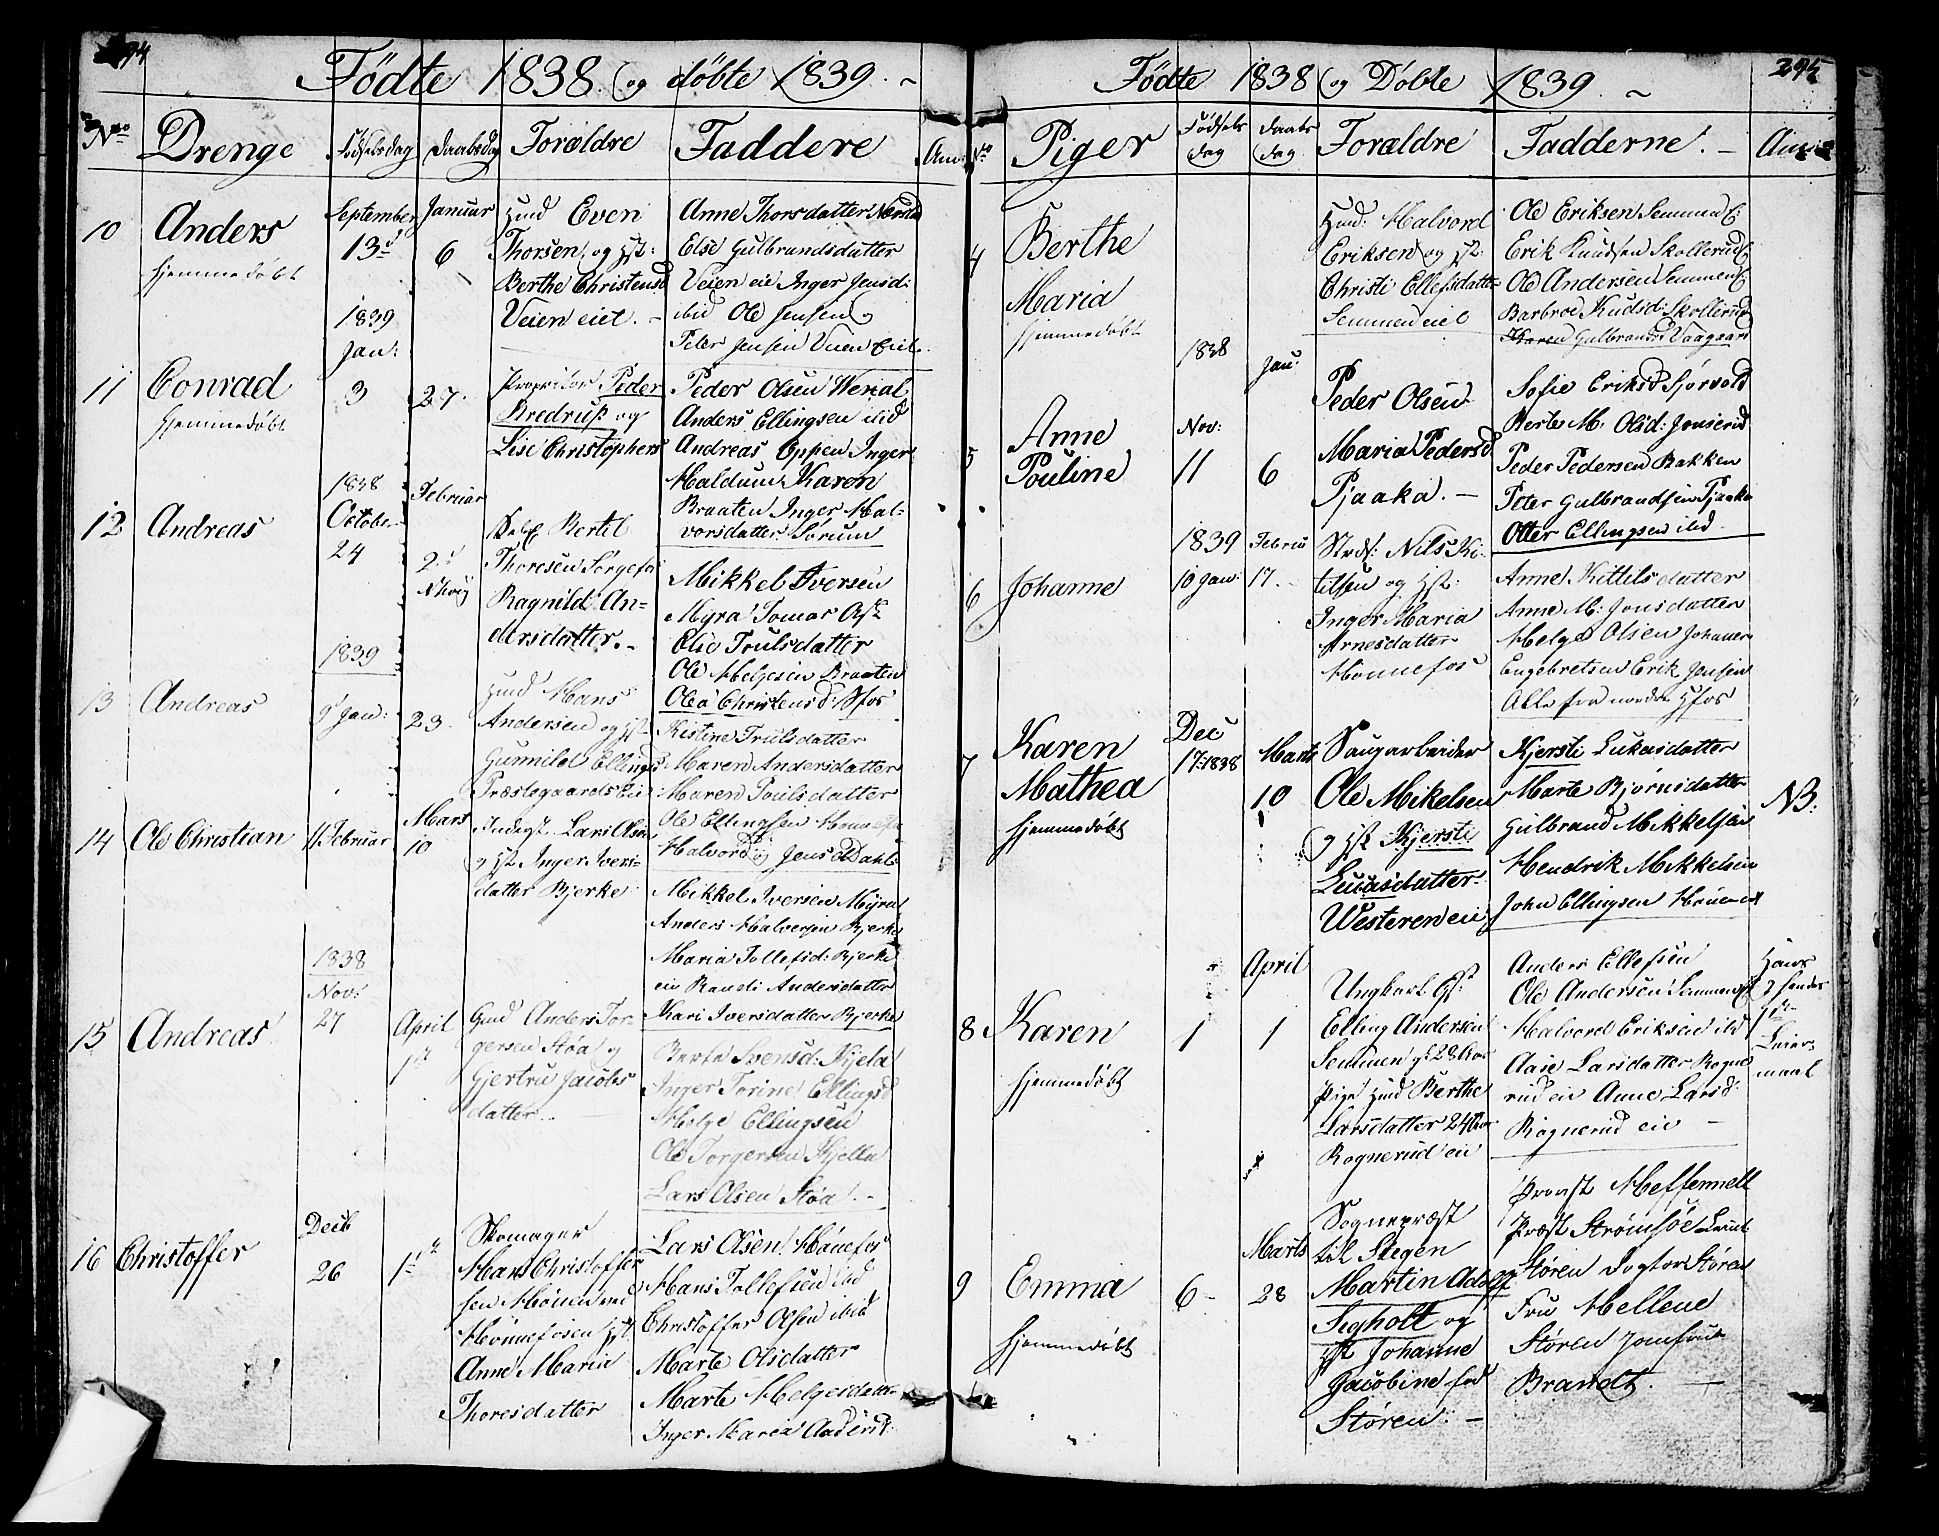 294
Födte 1838 og döbte 1839
No Drenge Födselsdag Daabsdag Forældre Faddere Anm
10 Anders
hjemmedöbt
September
13d
Januar
6
Hmd Even
Thorsen og Hst:
Berthe Christensd
Veien eiet.
Anne Thorsdatter
Else Gulbrandsdatter
Veien eie Inger Jensd:
ibid Ole Jensen og
Peter Jensen Veien Eiet
11 Conrad
hjemmedöbt
1839
Jan:
3
27.
Proprietær Peder
Bredrup og
Lise Christophers
Peder Olsen
Anders Ellingsen ibid
Andreas Oppen Inger
Haldum Karen
Braaten Inger Hal-
vorsdatter Sörum
12 Andreas
1838
October
24
Februar
2d
Bertel
Thoresen
Ragnild An-
dersdatter.
Mikkel Iversen
Myra Tomas
Olie Trulsdatter
Ole Helgesen Braaten
Olea Christensd: Hfos
13 Andreas
1839
9 Jan:
23.
Hmd Hans
Andersen og Hst
Gunnild Ellings
Præstegaards Eie
Kistine Trulsdatter
Maren Andersdatter
Maren Poulsdatter
Ole Ellingsen
Halvord og Jens Dahl
14 Ole Christian
11 Februar
Mars
10
Inderst Lars Olsen
og Hst Inger Iveri-
datter Bjerke
Mikkel Iversen Myra
Anders Halvorsen Bjerke
Maria Tollefsd: Bjerke
eie Randi Andersdatter
Kari Iversdatter Bjerke
15 Andreas
1838
Nov:
27
April
1st
Gmd Anders Tor-
gersen Stöa og
Gjertru Jacobs
datter
Berte Svensd: Kjela
Inger Torine Ellingsd
Helge Ellingsen
Ole Torgersen Kjella
Lars Olsen Stöa.
16 Christoffer
Decb
26
1st
Skomager
Hans Christoffer
sen Hönen ved
Hönnefosen Hst
Anne Maria
Thoresdatter
Lars Olsen Hönefos
Hans Tollefsen ibd
Christoffer Olsen ibid
Marte Olsdatter
Marte Helgesdatter
Inger Maria
295
Födte 1838 og Döbte 1839
No Piger Födsels dag Daabs dag Forældre Fadderne. Anm
4 Berthe
Maria
hjemmedöbt
Hmd: Halvord
Eriksen og Hst:
Christi Ellefsdatter
Semmen eiet
Ole Eriksen Semmen E:
Erik Knudsen Skollerud E
Ole Andersen Semmen E
Barbroe Kudsd: Skollerud
Karen Gulbrandsd Vaagaard
5 Anne
Pouline
1838
Nov:
11
Jan:
6
Peder Olsen
Maria Pedersd
Pjaaka.
Sofie Eriksd
Berte M. Olsd:
Peder Pedersen Bakken
Peter Gulbrandsen Pjaaka
Otter Ellingsen ibd.
6 Johanne
1839
10 Jan:
Februa
17.
Nils Ki-
tilsen og Hst:
Inger Maria
Arnesdatter
Hönnefos
Anne Kittilsdatter
Anne M: Jonsdatter
Helge Olsen Johanes
Engebretsen Erik Jensen
Alle fra nordre Hfos
7 Karen
Mathea
hjemmedöbt
Dec
17: 1838
Marts
10
Saugarbeider
Ole Mikelsen
og Hst Kjersti
Lucasdatter
Westeren eie
Kjersti Lukasdatter
Marte Björnsdatter
Gulbrand Mikkelsen
Hendrik Mikkelsen
John Ellingsen
NB:
8 Karen
hjemmedöbt
1
April
1
Ungkarl
Elling Andersen
Semmen gl 28 Aar
Pige Hmd Berthe
Larsdatter 24 Aar
Rognerud eie
Anders Ellefsen
Ole Andersen Semmen
Halvord Eriksen ibd
Aase Larsdatter Rogne
rud eie Anne Larsd:
Rognerud eie
Hans
Hendes
1ste
Leier-
maal
9 Emma
hjemmedöbt
6
Marts
28
Sognepræst
til Stegen
Martin Adolf
Segholt og
Hst Johanne
Jacobine föd
Stören.
Provst
Præst Strömsöe
Stören Dogtor Stören
Fru Mellene
Stören Jomfrue
Brandt.